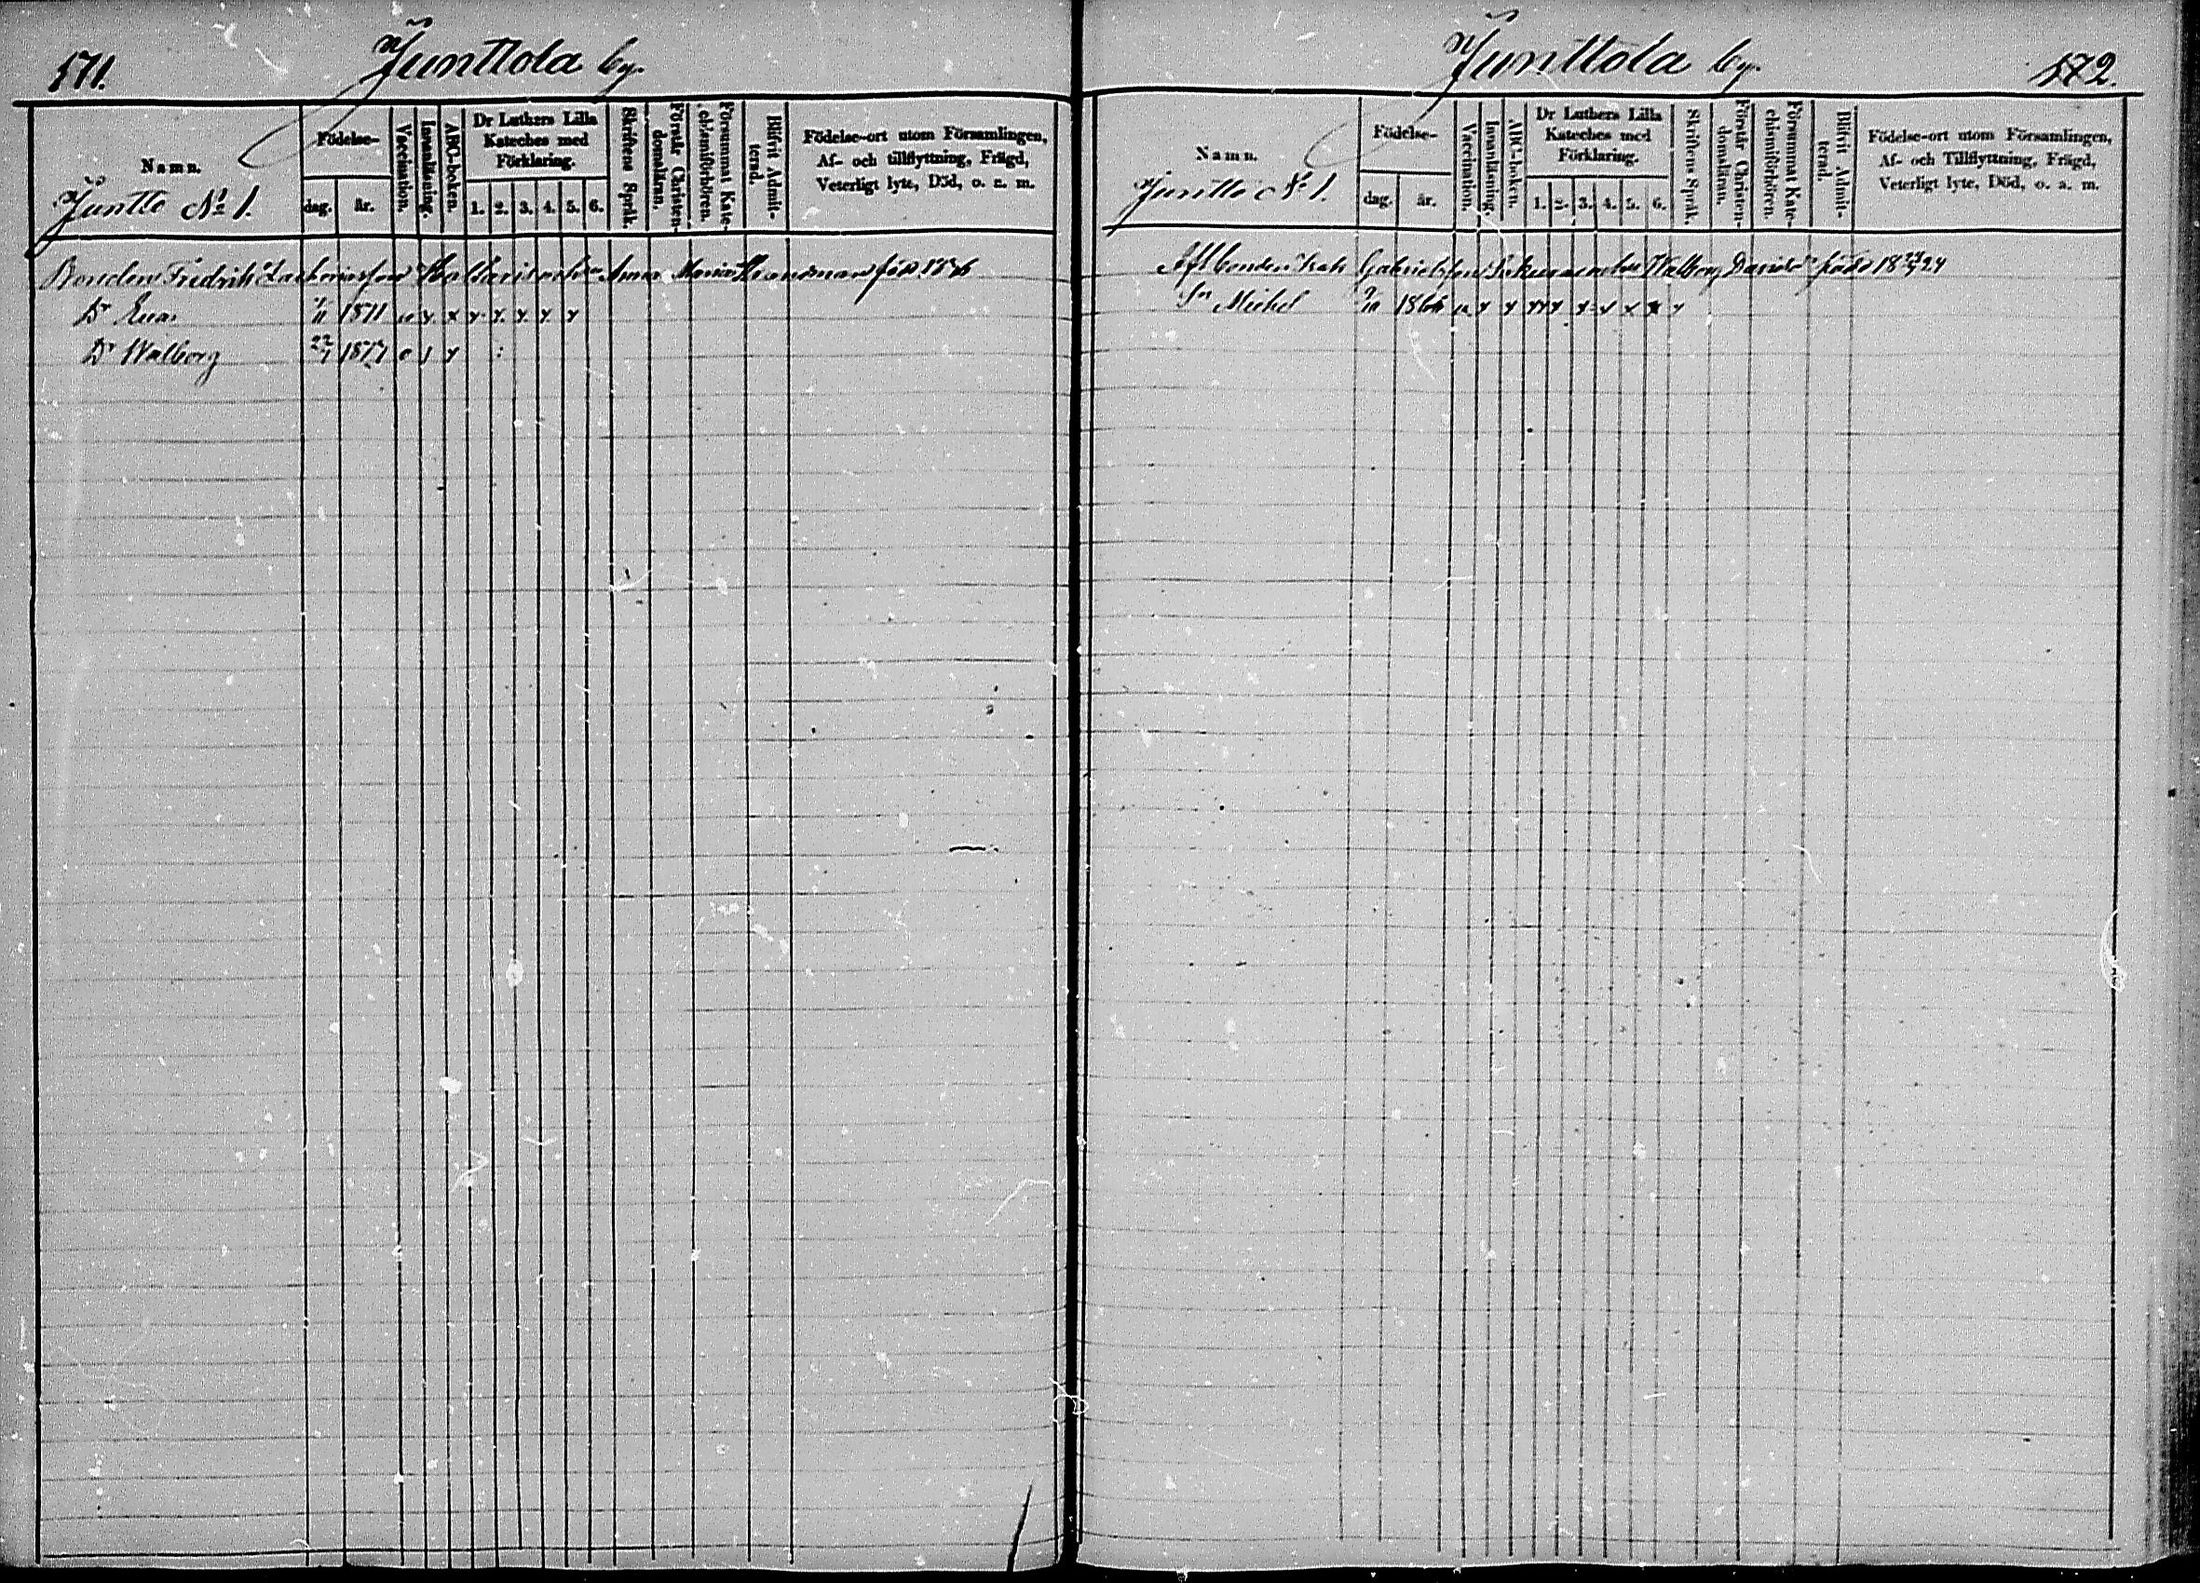 171.
Junttola by.
Namn.
Födelse-
dag.
år.
Vaccination.
Innanläsning.
ABC-boken.
Dr Luthers Lilla
Kateches med
Förklaring.
1. 2. 3. 4. 5. 6.
Skriftens Språk.
Förstår Christen-
domsläran.
Försummat Kate-
chismiförhören.
Blifvit Admit-
terad.
Födelse-ort utom Församlingen,
Af- och tillflyttning, Frägd,
Veterligt lyte, Död, o. s. m.
Juntto No 1.
Bonden Fredrik Zachariasson och Anna Maria född
Dr Eva 1/11 1871
Dr Walborg 22/7 1877
Junttola by.
172.
Namn.
Födelse-
dag.
år.
Vaccination.
Innanläsning.
ABC-boken.
Dr Luthers Lilla
Kateches med
Förklaring.
1. 2. 3. 4. 5. 6.
Skriftens Språk.
Förstår Christen-
domsläran.
Försummat Kate-
chismiförhören.
Blifvit Admit-
terad.
Födelse-ort utom Församlingen,
Af- och Tillflyttning, Frägd,
Veterligt lyte, Död, o. a. m.
Juntto No 1.
Gabrielsson Walborg född
Sn Mickel 1866